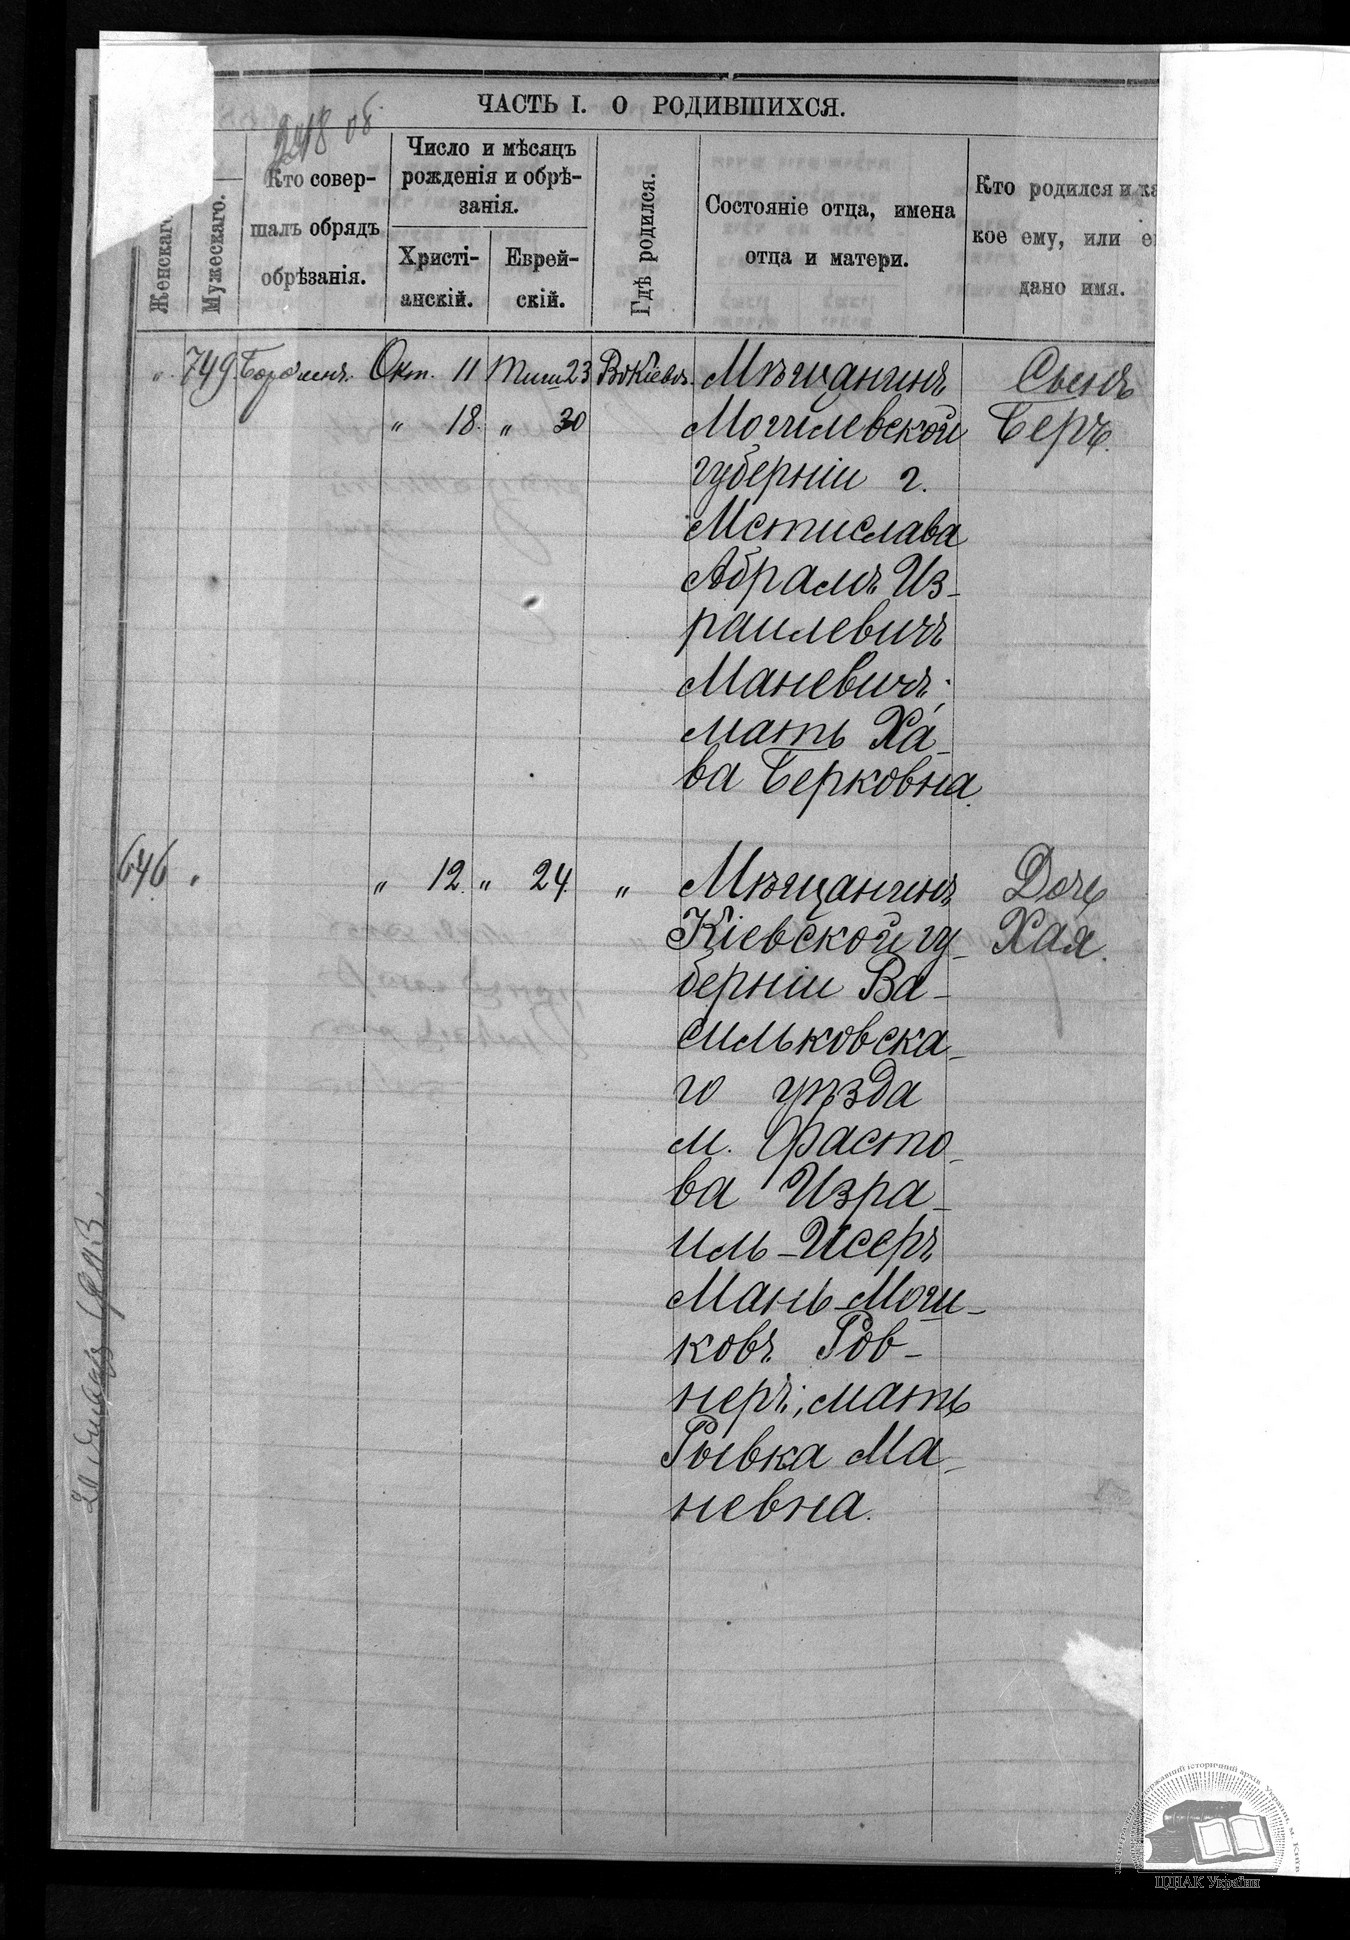 ЧАСТЬ I. О РОДИВШИХСЯ.
248 об.
Женскаго
Мужескаго.
Кто совер-
шалъ обрядъ
обрѣзанія.
Число и мѣсяцъ
рожденія и обрѣ-
занія.
Христі-
анскій.
Еврей-
скій.
Гдѣ родился.
Состояніе отца, имена
отца и матери.
Кто родился и ка
кое ему, или е
дано имя.
„ 749. Окт. 11 Тиш 23 Въ Кіевѣ. Мѣщанинъ Сынъ
„ 18. „ 30 Могилевской Беръ.
губерніи г.
Мстислава
Абрамъ Из-
раилевичъ
Маневичъ;
мать Ха-
ва Берковна.
646 „ „ 12. „ 24. „ Мѣщанинъ Дочь
Кіевской гу- Хая.
берніи Ва-
сильковска-
го уѣзда
м. Фасто-
ва Изра-
иль-Исеръ
Мань-Мош-
ковъ Ров-
неръ; мать
Рывка Ма-
невна.
ЦДІАК України